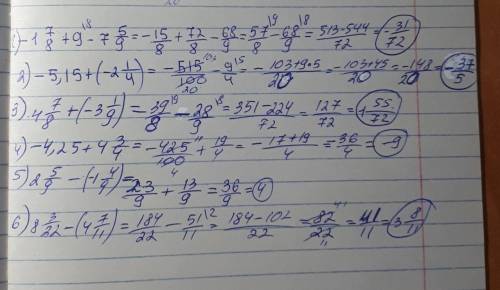 1) -1 7/8 + 9 - 7 5/9 = -15/8 + 72/8 - 68/9 = 57/8 - 68/9 = 513-544/72 = -31/72
2) -5,15 + (-2 1/4) = -515/100 - 9/4 = -103+9·5/20 = -103+45/20 = -148/20 = -37/5
3) 4 7/8 + (-3 1/9) = 39/8 - 28/9 = 351-224/72 = 127/72 = 1 55/72
4) -4,25 + 4 3/4 = -425/100 + 19/4 = -17+19/4 = 36/4 = -9
5) 2 5/9 - (-1 4/9) = 23/9 + 13/9 = 36/9 = 4
6) 8 3/22 - (4 7/11) = 184/22 - 51/11 = 184-102/22 = 82/22 = 41/11 = 3 8/11